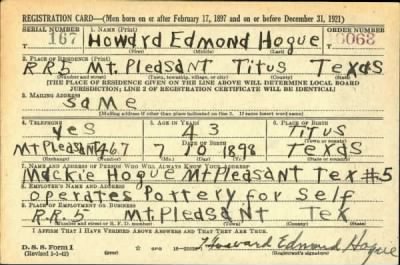 REGISTRATION CARD—(Men born on or after February 17, 1897 and on or before December 31, 1921)
SERIAL NUMBER 1. NAME (Print) ORDER NUMBER
T 167 Howard Edmond Hogue
(First) (Middle) (Last)
2. PLACE OF RESIDENCE (Print)
RR5 Mt. Pleasant Titus Texas
(Number and street) (Town, township, village, or city) (County) (State)
[THE PLACE OF RESIDENCE GIVEN ON THE LINE ABOVE WILL DETERMINE LOCAL BOARD
JURISDICTION; LINE 2 OF REGISTRATION CERTIFICATE WILL BE IDENTICAL]
3. MAILING ADDRESS
Same
[Mailing address if other than place indicated on line 2. If same insert word same]
4. TELEPHONE 5. AGE IN YEARS 6. PLACE OF BIRTH
yes 43 Titus
DATE OF BIRTH (Town or county)
Mt Pleasant 467 7 10 1898 Texas
(Mo.) (Day) (Yr.) (State or country)
7. NAME AND ADDRESS OF PERSON WHO WILL ALWAYS KNOW YOUR ADDRESS
Mackie Hogue Mt Pleasant Tex #5
8. EMPLOYER'S NAME AND ADDRESS
operates Pottery for Self
9. PLACE OF EMPLOYMENT OR BUSINESS
R.R.5 Mt. Pleasant Tex
(Number and street or R. F. D. number) (Town) (County) (State)
I AFFIRM THAT I HAVE VERIFIED ABOVE ANSWERS AND THAT THEY ARE TRUE.
D. S. S. Form 1
(Revised 1-1-42)
Howard Edmond Hogue
(Registrant's signature)